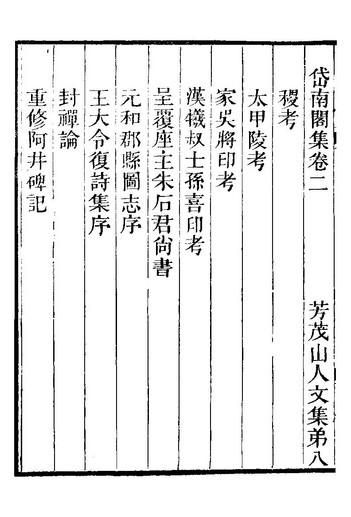 岱南閣集卷二　芳茂山人文集弟八
稷考
太甲陵考
家吳將印考
漢犧叔士孫喜印考
呈覆座主朱石君尙書
元和郡縣圖志序
王大令復詩集序
封禪論
重修阿井碑記